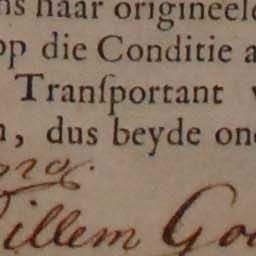 ns haar origineele
op die Conditie a
Tranſportant v
n, dus beyde on
Willem Go